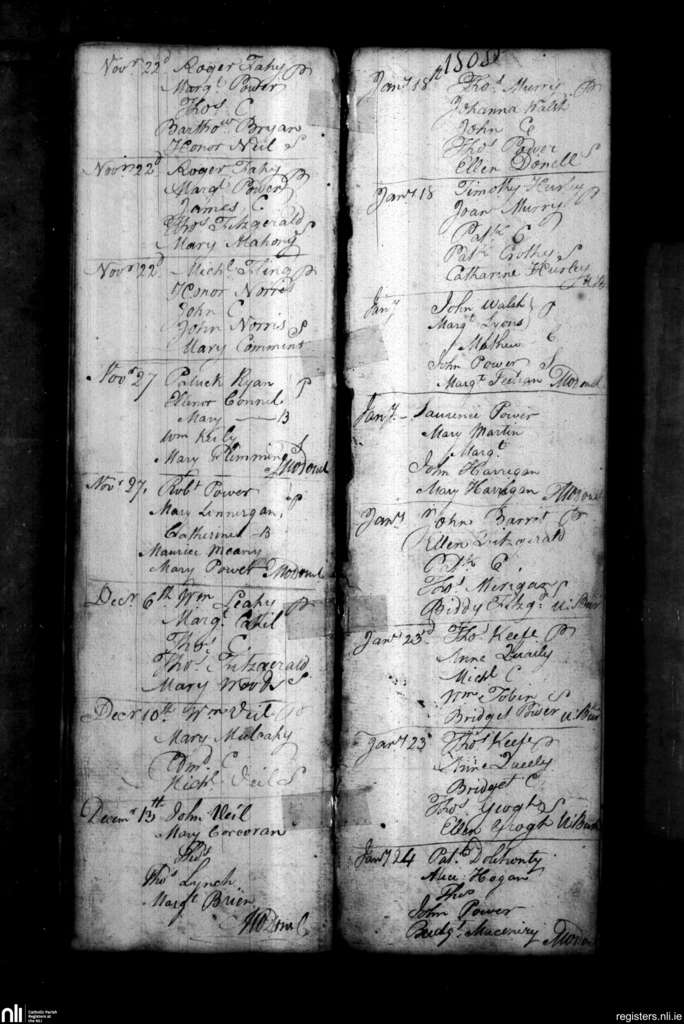 Novr 22d Roger Fahy P
Margt Power
Thos C
Barthow Bryan
Honor Neil S
Novr 22d Roger Fahy P
Margt Power
James C
Thos Fitzgerald
Mary Mahony S
Novr 22d Michl P
Honor Norris
John C
John Norris S
Mary Commins
Novr 27 Patrick Ryan P
Elenor Connel
Mary B
Wm Kiely
Mary Flemming S
Novr 27. Robt Power P
Mary Linnergan
Catherine B
Maurice Meany
Mary Power
Decr 6th Wm Leahy P
Margt Cahil
Thos C
Thos Fitzgerald
Mary Woods S
Decr 10th Wm Neil
Mary Mulcahy
Edmd C
Michl Neil S
Decemr 13th John Neil
Mary Corcoran
Thos
Thos Lynch
Margt Brien
1805
Jany 18th Thos Murris P
Johanna Walsh
John C
Thos Power
Ellen Donell S
Jany 18 Timothy Hurley P
Joan Murry
Patk C
Patk Crothy S
Catharine Hurley
Jany John Walsh P
Margt Lyons
Mathew C
John Power S
Margt Feehan
Jany Laurence Power
Mary Martin
Margt
John Harrigan
Mary Harrigan
Jany John Barris P
Ellen Fitzgerald
C
Thos S
Biddy Fitzgd
Jany 23d Thos Keefe P
Anne Queely
Michl C
Wm Tobin S
Bridget Power
Jany 23 Thos Keefe P
Anne Queely
Bridget C
Thos Geogh S
Ellen Geogh
Jany 24 Patk Dohhonty
Alice Hogan
Thos
John Power
Bridgt Maceniry
nli
Catholic Parish
Registers at
the NLI
registers.nli.ie